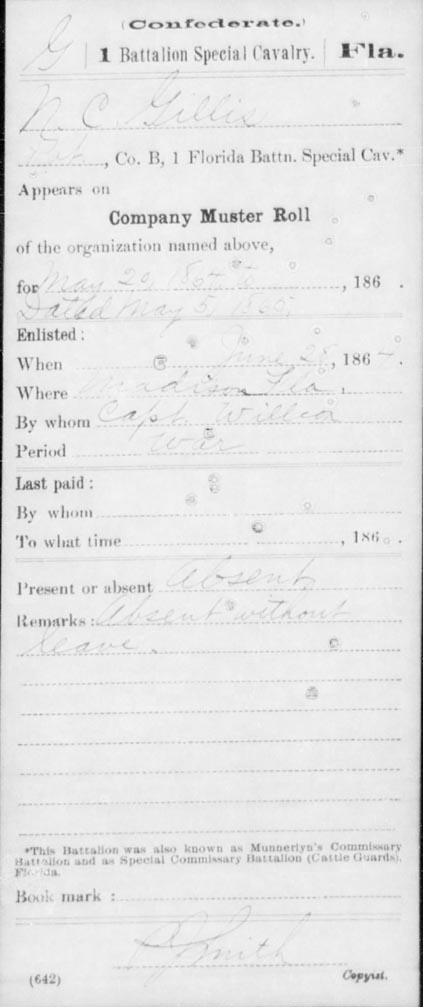 (Confederate.)
G | 1 Battalion Special Cavalry. | Fla.
N. C. Gillis
Pvt, Co. B, 1 Florida Battn. Special Cav.*
Appears on
Company Muster Roll
of the organization named above,
for May 29, 1864, to , 186 .
Dated May 5, 1865.
Enlisted:
When June 28, 1864.
Where Madison Fla.
By whom Capt.
Period War
Last paid:
By whom
To what time , 186 .
Present or absent Absent
Remarks: Absent without
leave.
*This Battalion was also known as Munnerlyn's Commissary
Battalion and as Special Commissary Battalion (Cattle Guards),
Florida.
Book mark:
Smith
(642) Copyist.